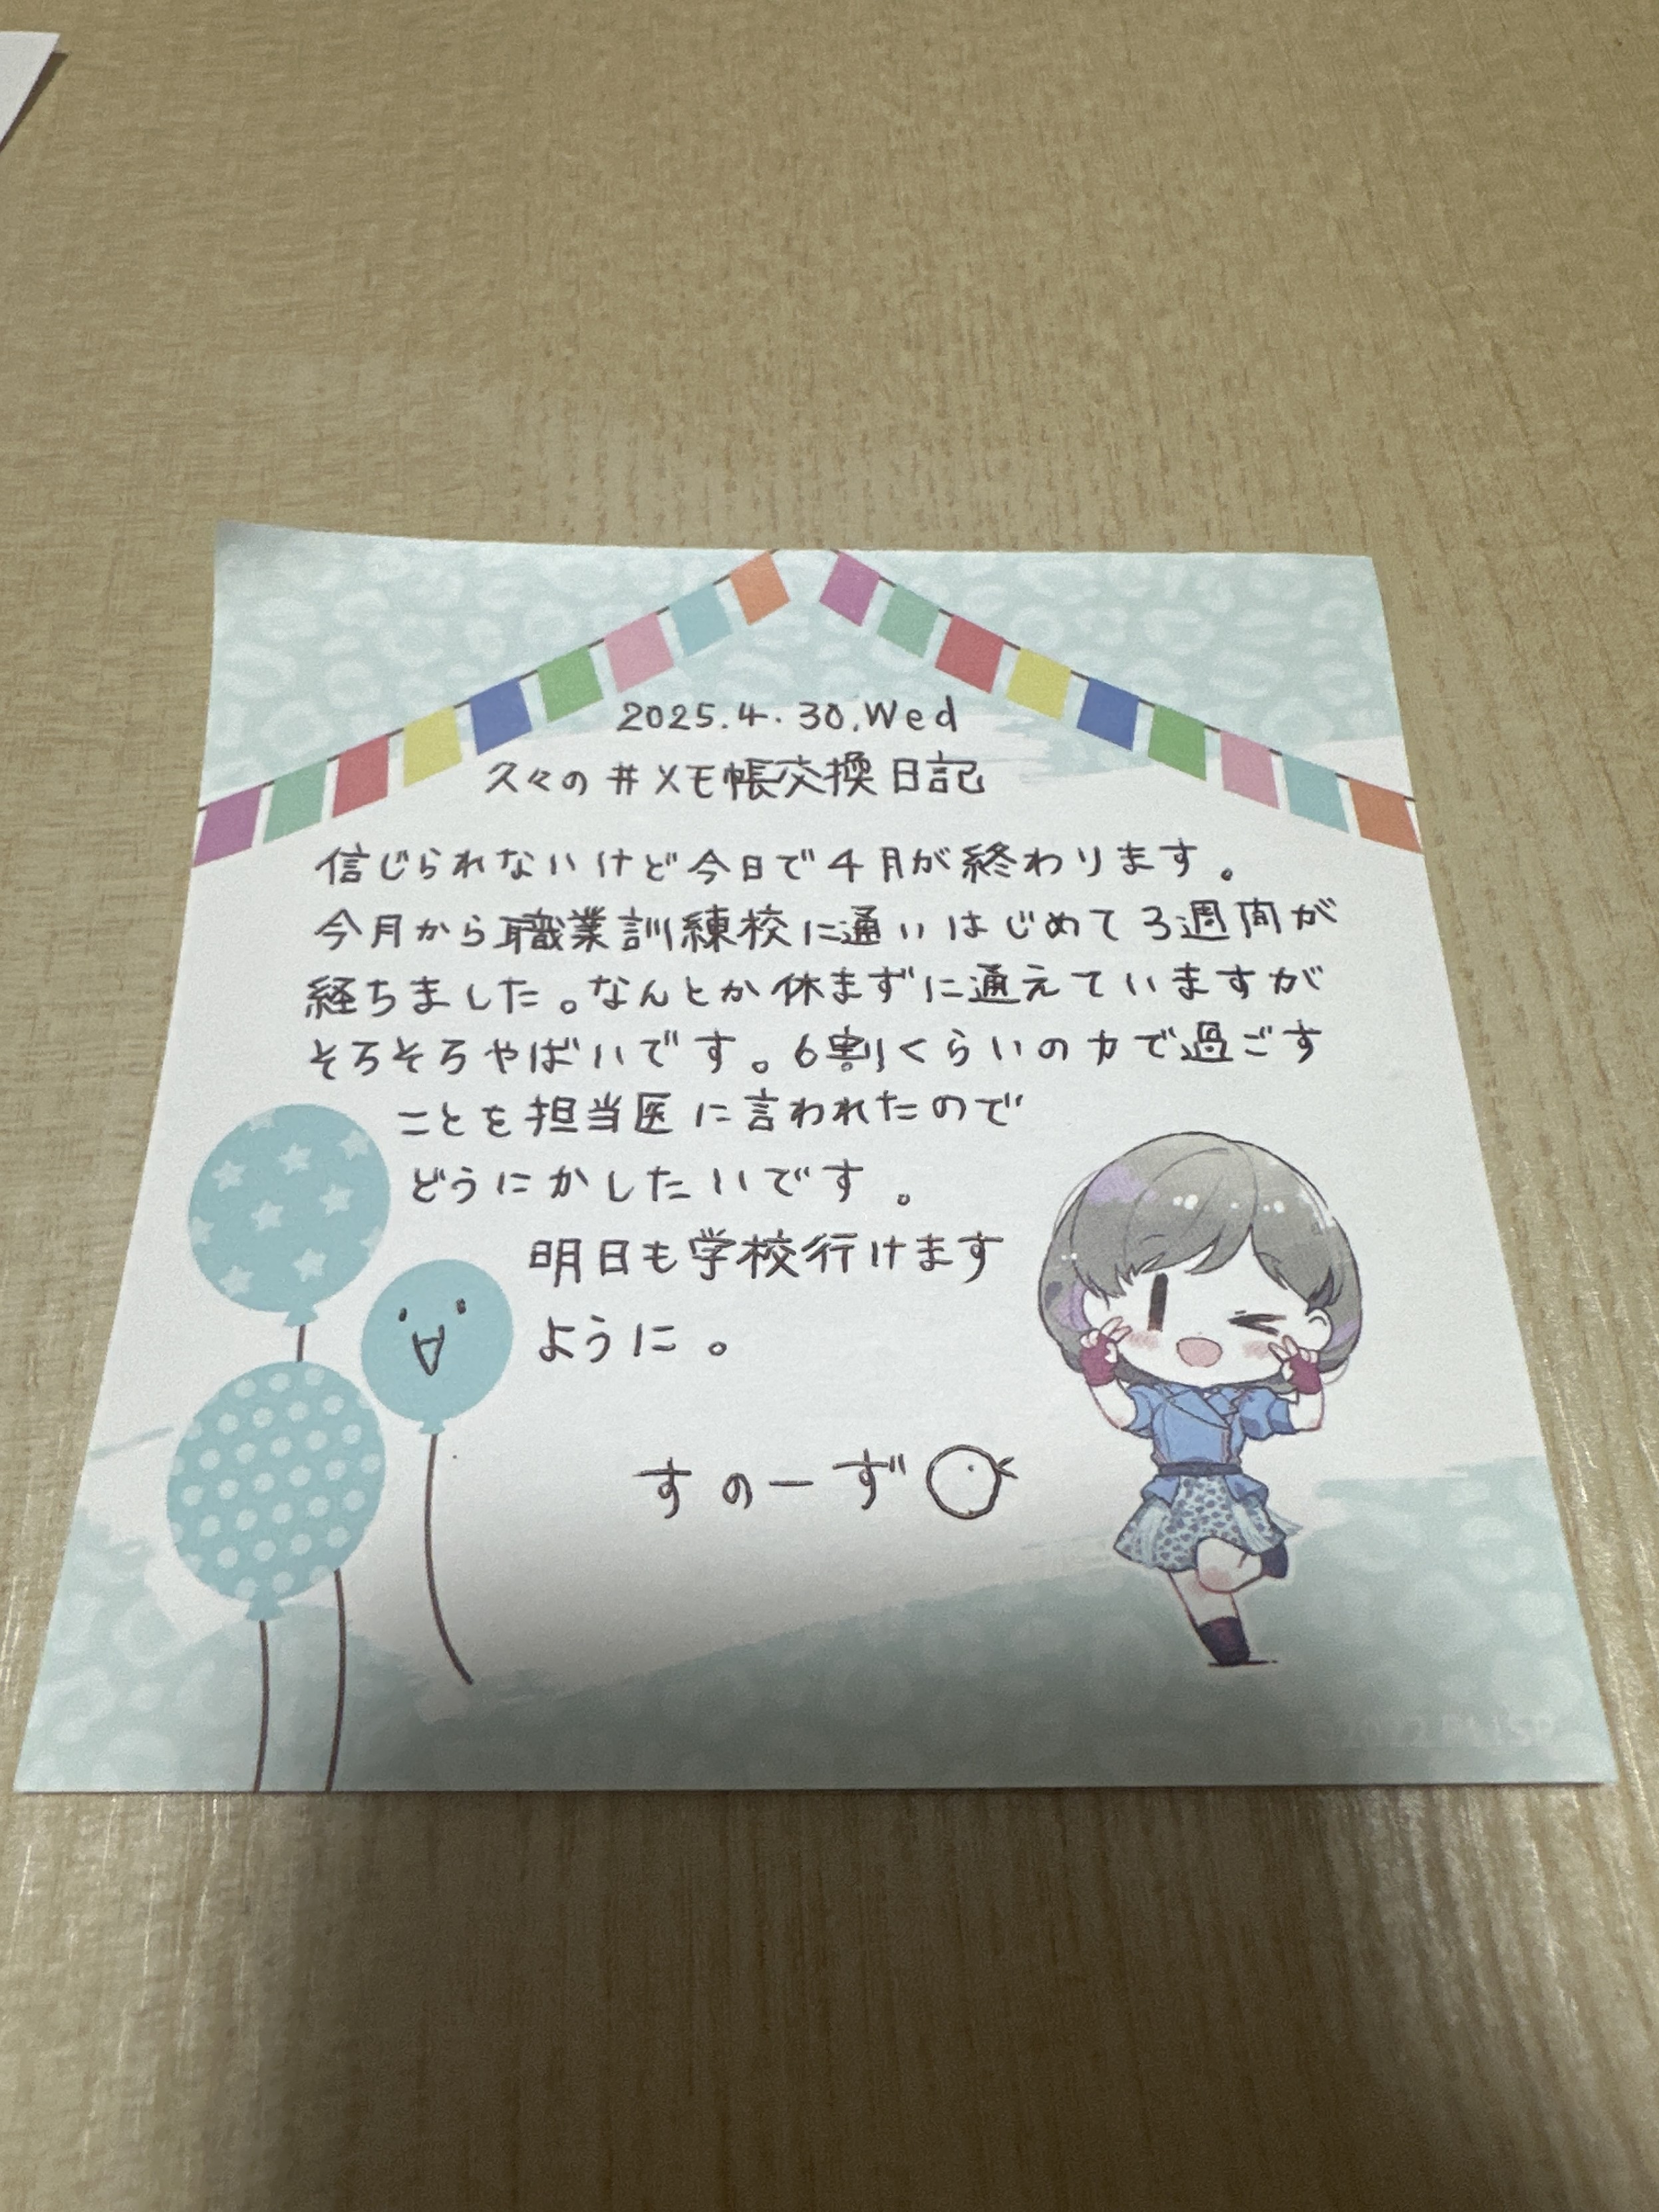 2025.4.30.Wed
久々の#メモ帳交換日記
信じられないけど今日で4月が終わります。
今月から職業訓練校に通いはじめて3週間が
経ちました。なんとか休まずに通えていますが
そろそろやばいです。6割くらいの力で過ごす
ことを担当医に言われたので
どうにかしたいです。
明日も学校行けます
ように。
すのーず